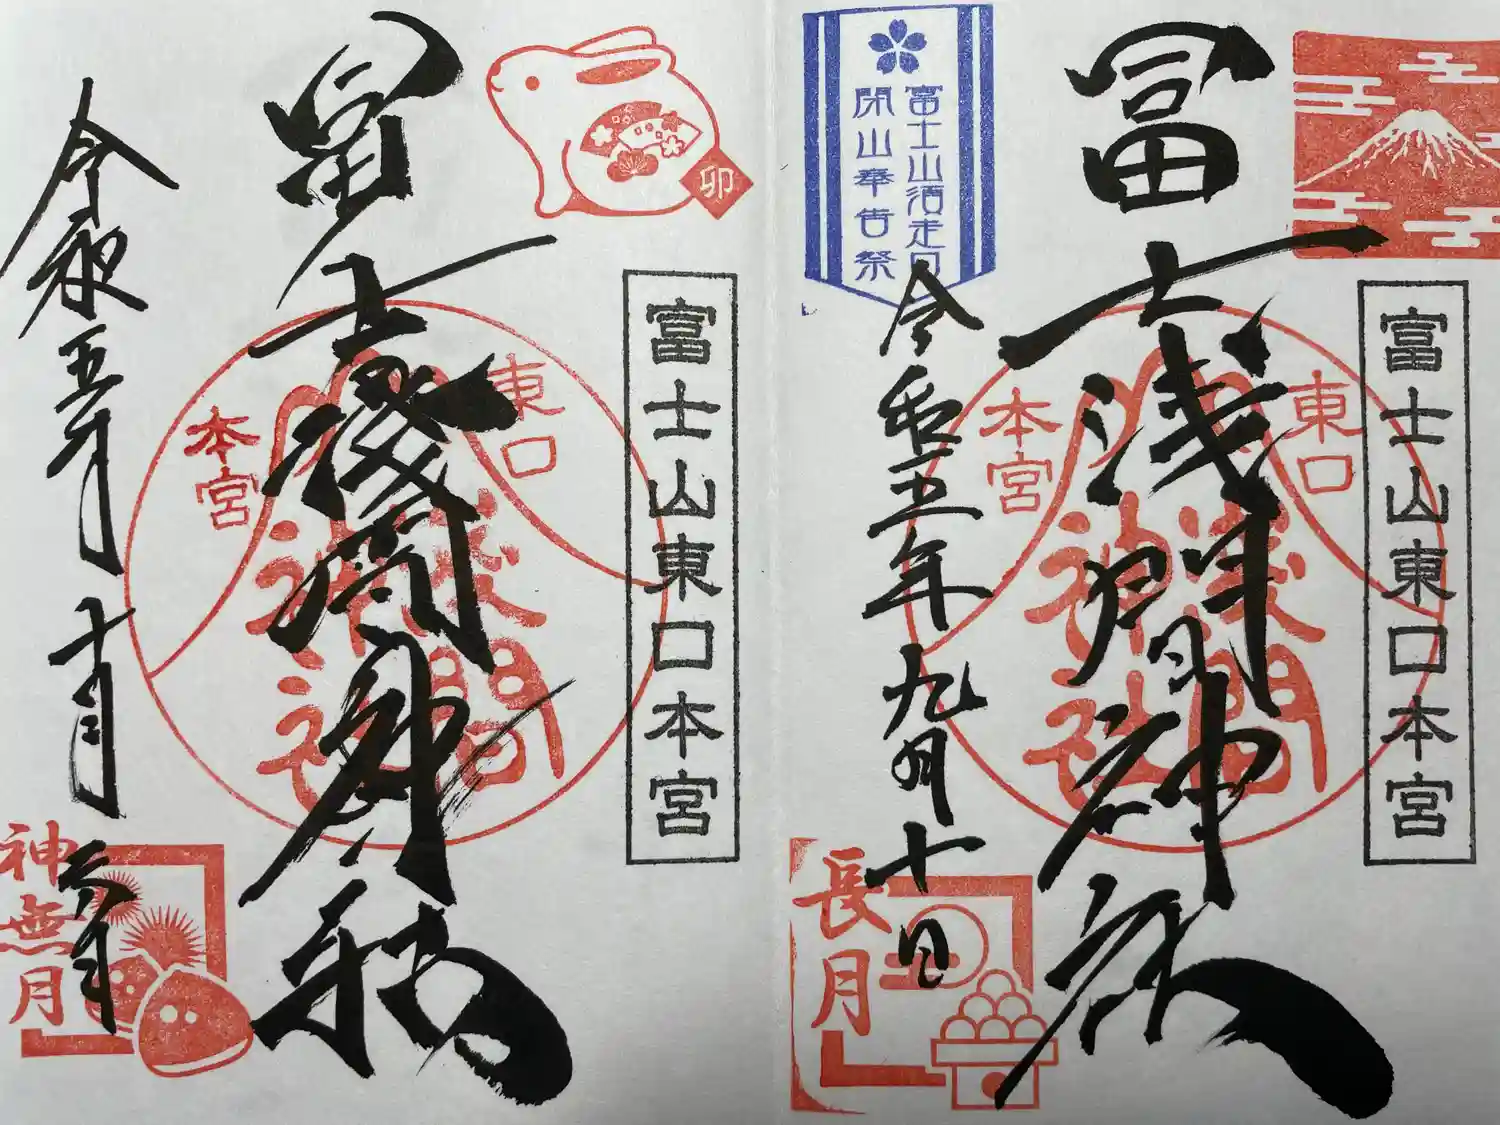 富士山東口本宮
冨士浅間神社
東口
本宮
浅間
神社
富士山須走口
閉山奉告祭
令和五年九月十日
長月
富士山東口本宮
卯
冨士浅間神社
東口
本宮
浅間
神社
令和五年
神無月